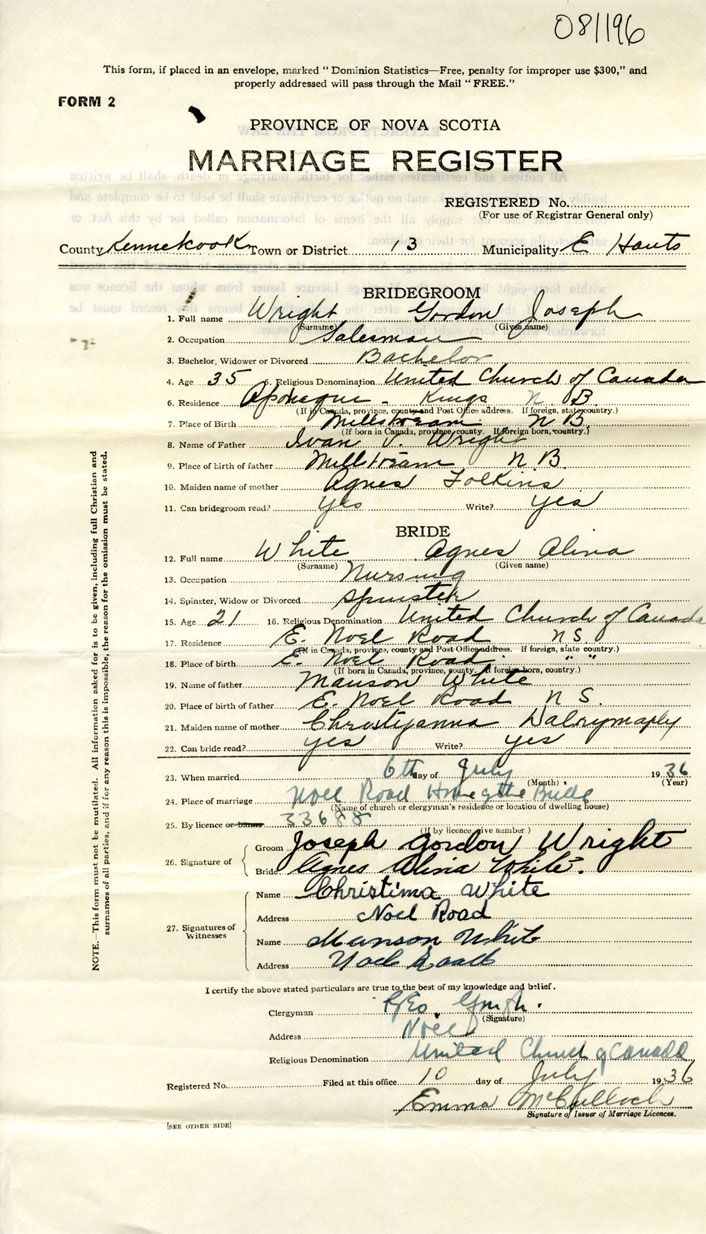 081196
This form, if placed in an envelope, marked "Dominion Statistics—Free, penalty for improper use $300," and
properly addressed will pass through the Mail "FREE."
FORM 2
PROVINCE OF NOVA SCOTIA
MARRIAGE REGISTER
REGISTERED No.
(For use of Registrar General only)
County Kennetcook Town or District 13 Municipality E Hants
BRIDEGROOM
1. Full name Wright Gordon Joseph
(Surname) (Given name)
2. Occupation Salesman
3. Bachelor, Widower or Divorced Bachelor
4. Age 35 5. Religious Denomination United Church of Canada
6. Residence Apohaqui - Kings N B
(If in Canada, province, county and Post Office address. If foreign, state country.)
7. Place of Birth Millstream N B.
(If born in Canada, province, county. If foreign born, country.)
8. Name of Father Ivan V. Wright
9. Place of birth of father Millstream N B.
10. Maiden name of mother Agnes Folkins
11. Can bridegroom read? yes Write? yes
BRIDE
12. Full name White Agnes Alina
(Surname) (Given name)
13. Occupation Nursing
14. Spinster, Widow or Divorced Spinster
15. Age 21 16. Religious Denomination United Church of Canada
17. Residence E. Noel Road N S.
(If in Canada, province, county and Post Office address. If foreign, state country.)
18. Place of birth E. Noel Road " "
(If born in Canada, province, county, if foreign born, country.)
19. Name of father Manson White
20. Place of birth of father E. Noel Road N S.
21. Maiden name of mother Christyanna Dalrymaply
22. Can bride read? yes Write? yes
23. When married 6th day of July 1936
(Month) (Year)
24. Place of marriage Noel Road Home of the Bride
(Name of church or clergyman's residence or location of dwelling house)
25. By licence or banns 33688
(If by licence give number.)
26. Signature of Groom Joseph Gordon Wright
Bride Agnes Alina White.
27. Signatures of Witnesses
Name Christima White
Address Noel Road
Name Manson White
Address Noel Road
I certify the above stated particulars are to the best of my knowledge and belief.
Clergyman Geo.
(Signature)
Address Noel
Religious Denomination United Church of Canada
Registered No. Filed at this office 10 day of July 1936
Emma McCulloch
Signature of Issuer of Marriage Licences.
[SEE OTHER SIDE]
NOTE.—This form must not be mutilated. All information asked for is to be given, including full Christian and
surnames of all parties, and if for any reason this is impossible, the reason for the omission must be stated.